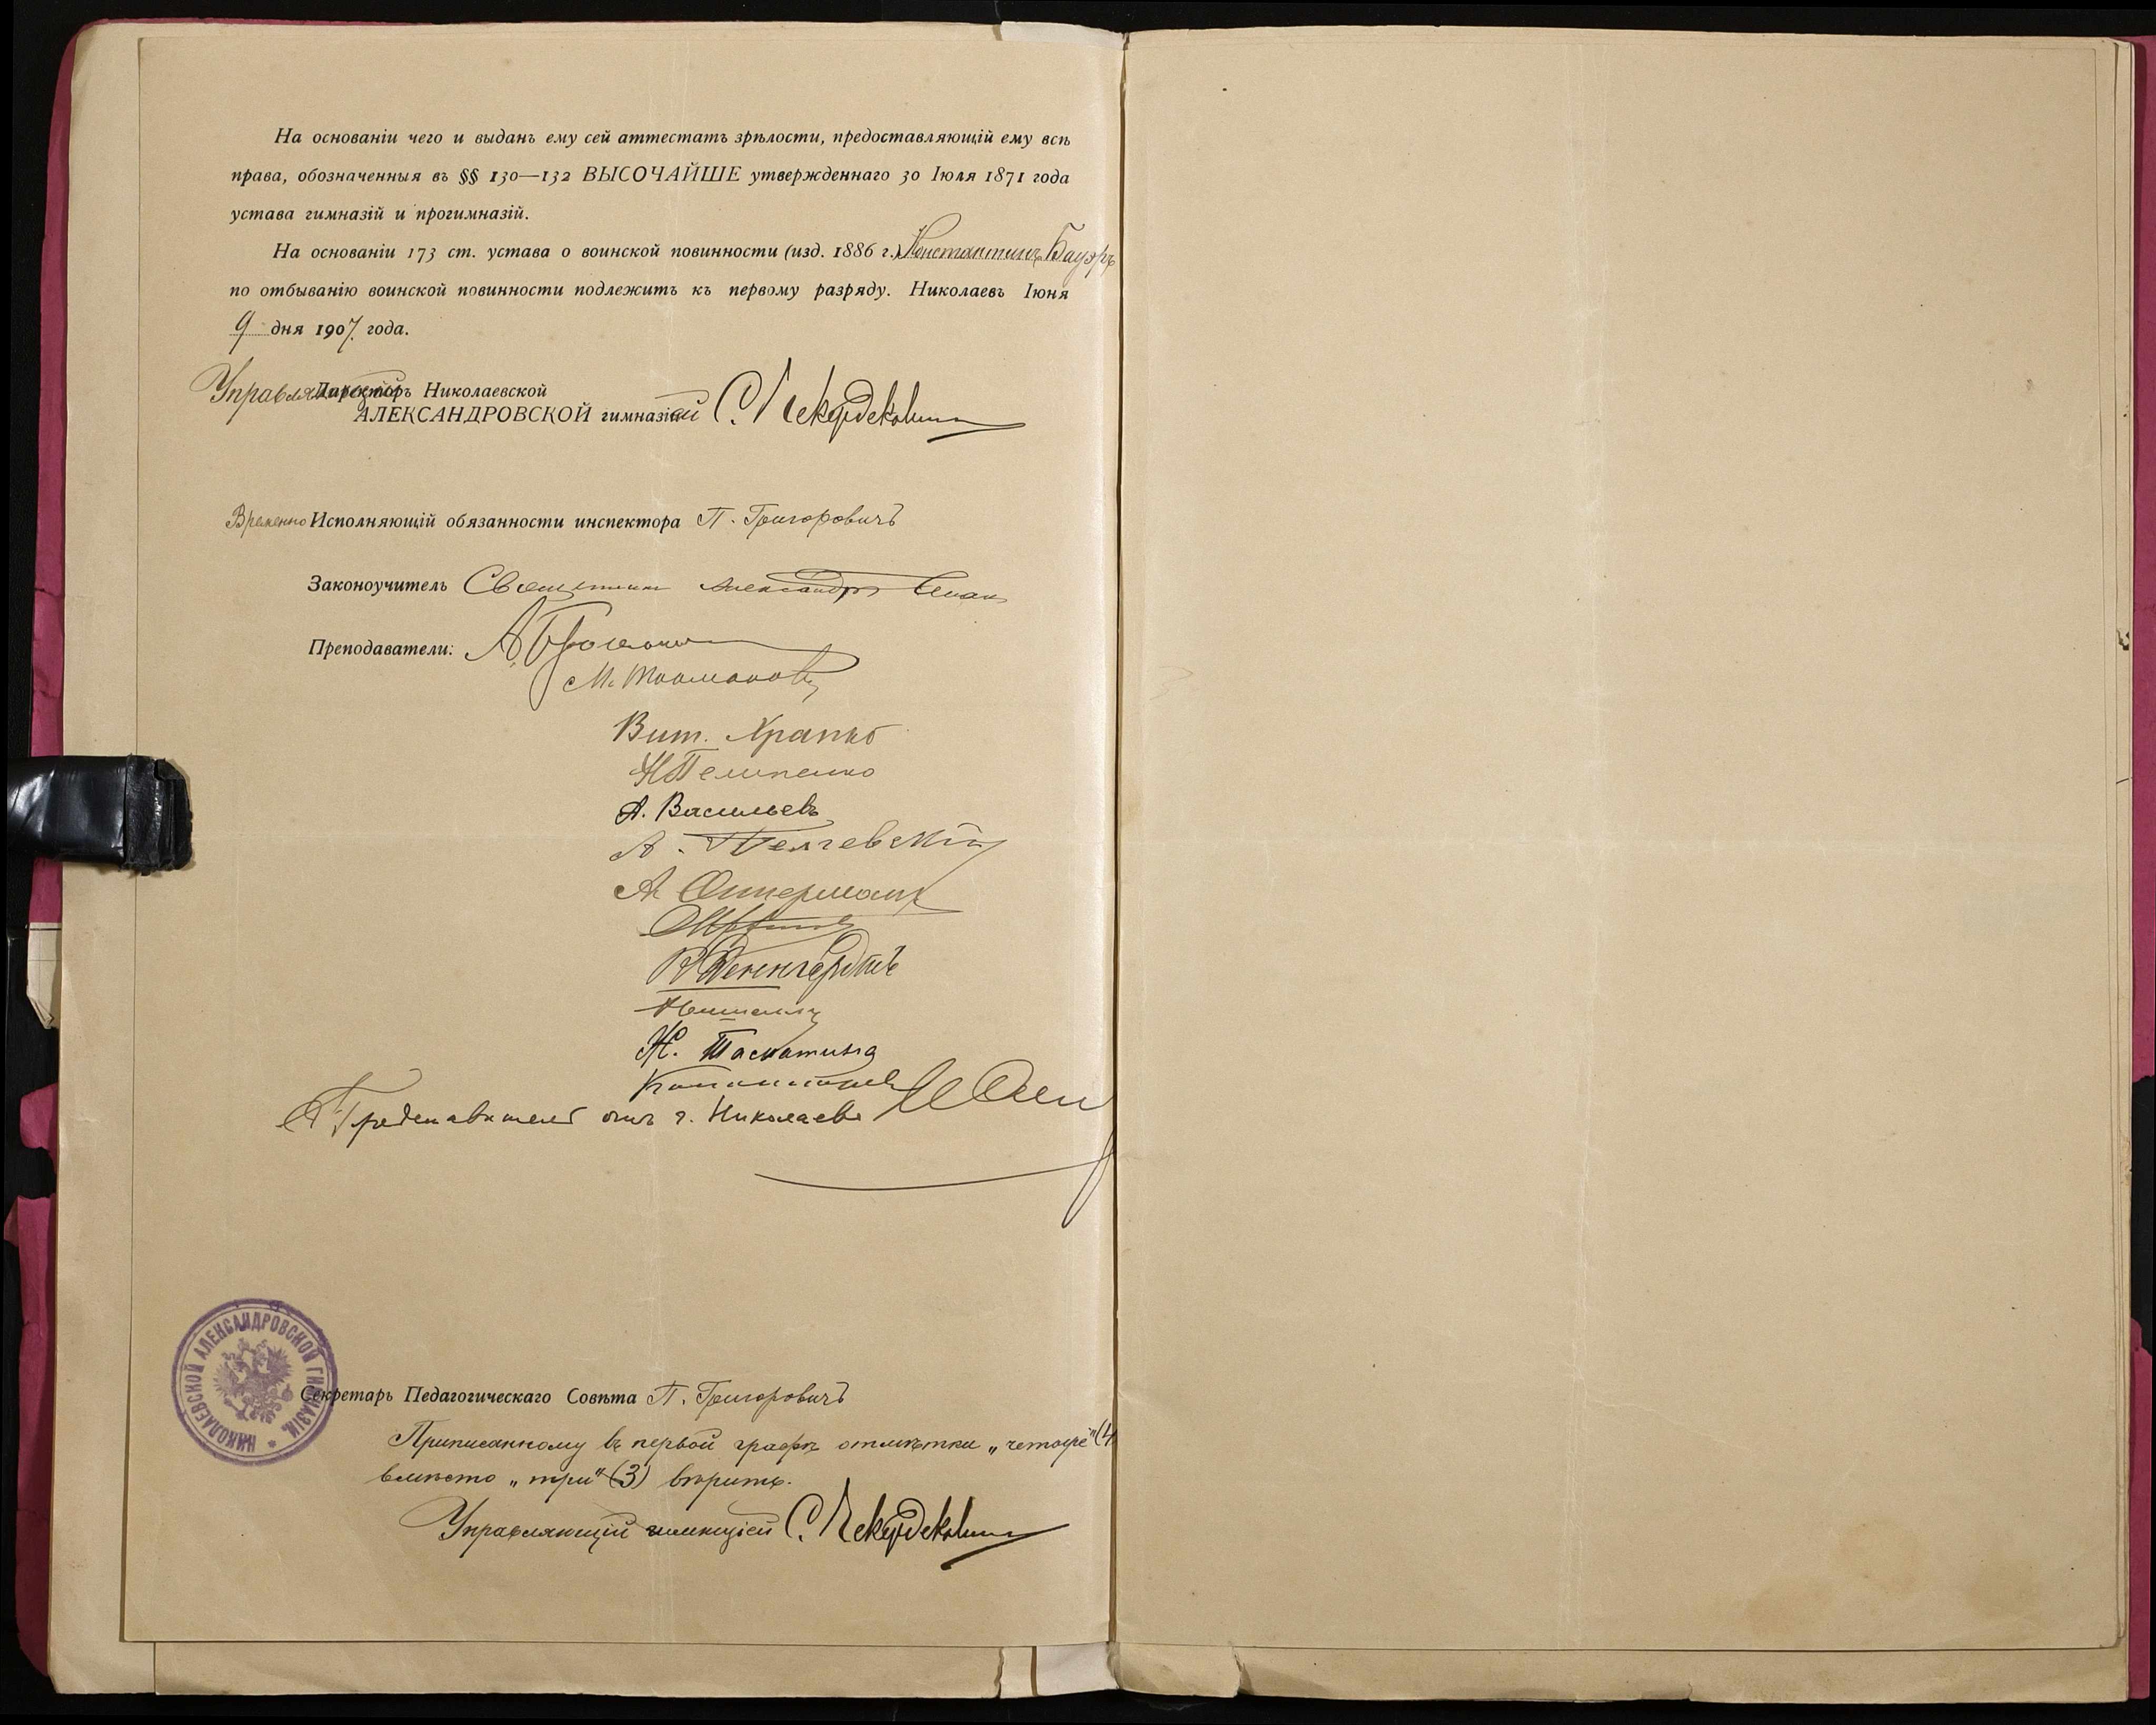 На основаніи чего и выданъ ему сей аттестатъ зрѣлости, предоставляющій ему всѣ
права, обозначенныя въ §§ 130—132 ВЫСОЧАЙШЕ утвержденнаго 30 Іюля 1871 года
устава гимназій и прогимназій.
На основаніи 173 ст. устава о воинской повинности (изд. 1886 г.) Константинъ Бауэръ
по отбыванію воинской повинности подлежитъ къ первому разряду. Николаевъ Іюня
9 дня 1907 года.
Управляющій Директоръ Николаевской
АЛЕКСАНДРОВСКОЙ гимназіей С.
Временно Исполняющій обязанности инспектора П. Григоровичъ
Законоучитель Священникъ Александръ
Преподаватели: А.
М.
Вит. Храпко
Н Пелипенко
А. Васильевъ
А.
А.
Представитель отъ г. Николаева
НИКОЛАЕВСКОЙ АЛЕКСАНДРОВСКОЙ ГИМНАЗІИ. *
Секретарь Педагогическаго Совѣта П. Григоровичъ
Приписанному въ первой графѣ отмѣтки „четыре" (4
вмѣсто „три" (3) вѣрить.
Управляющій гимназіей С.